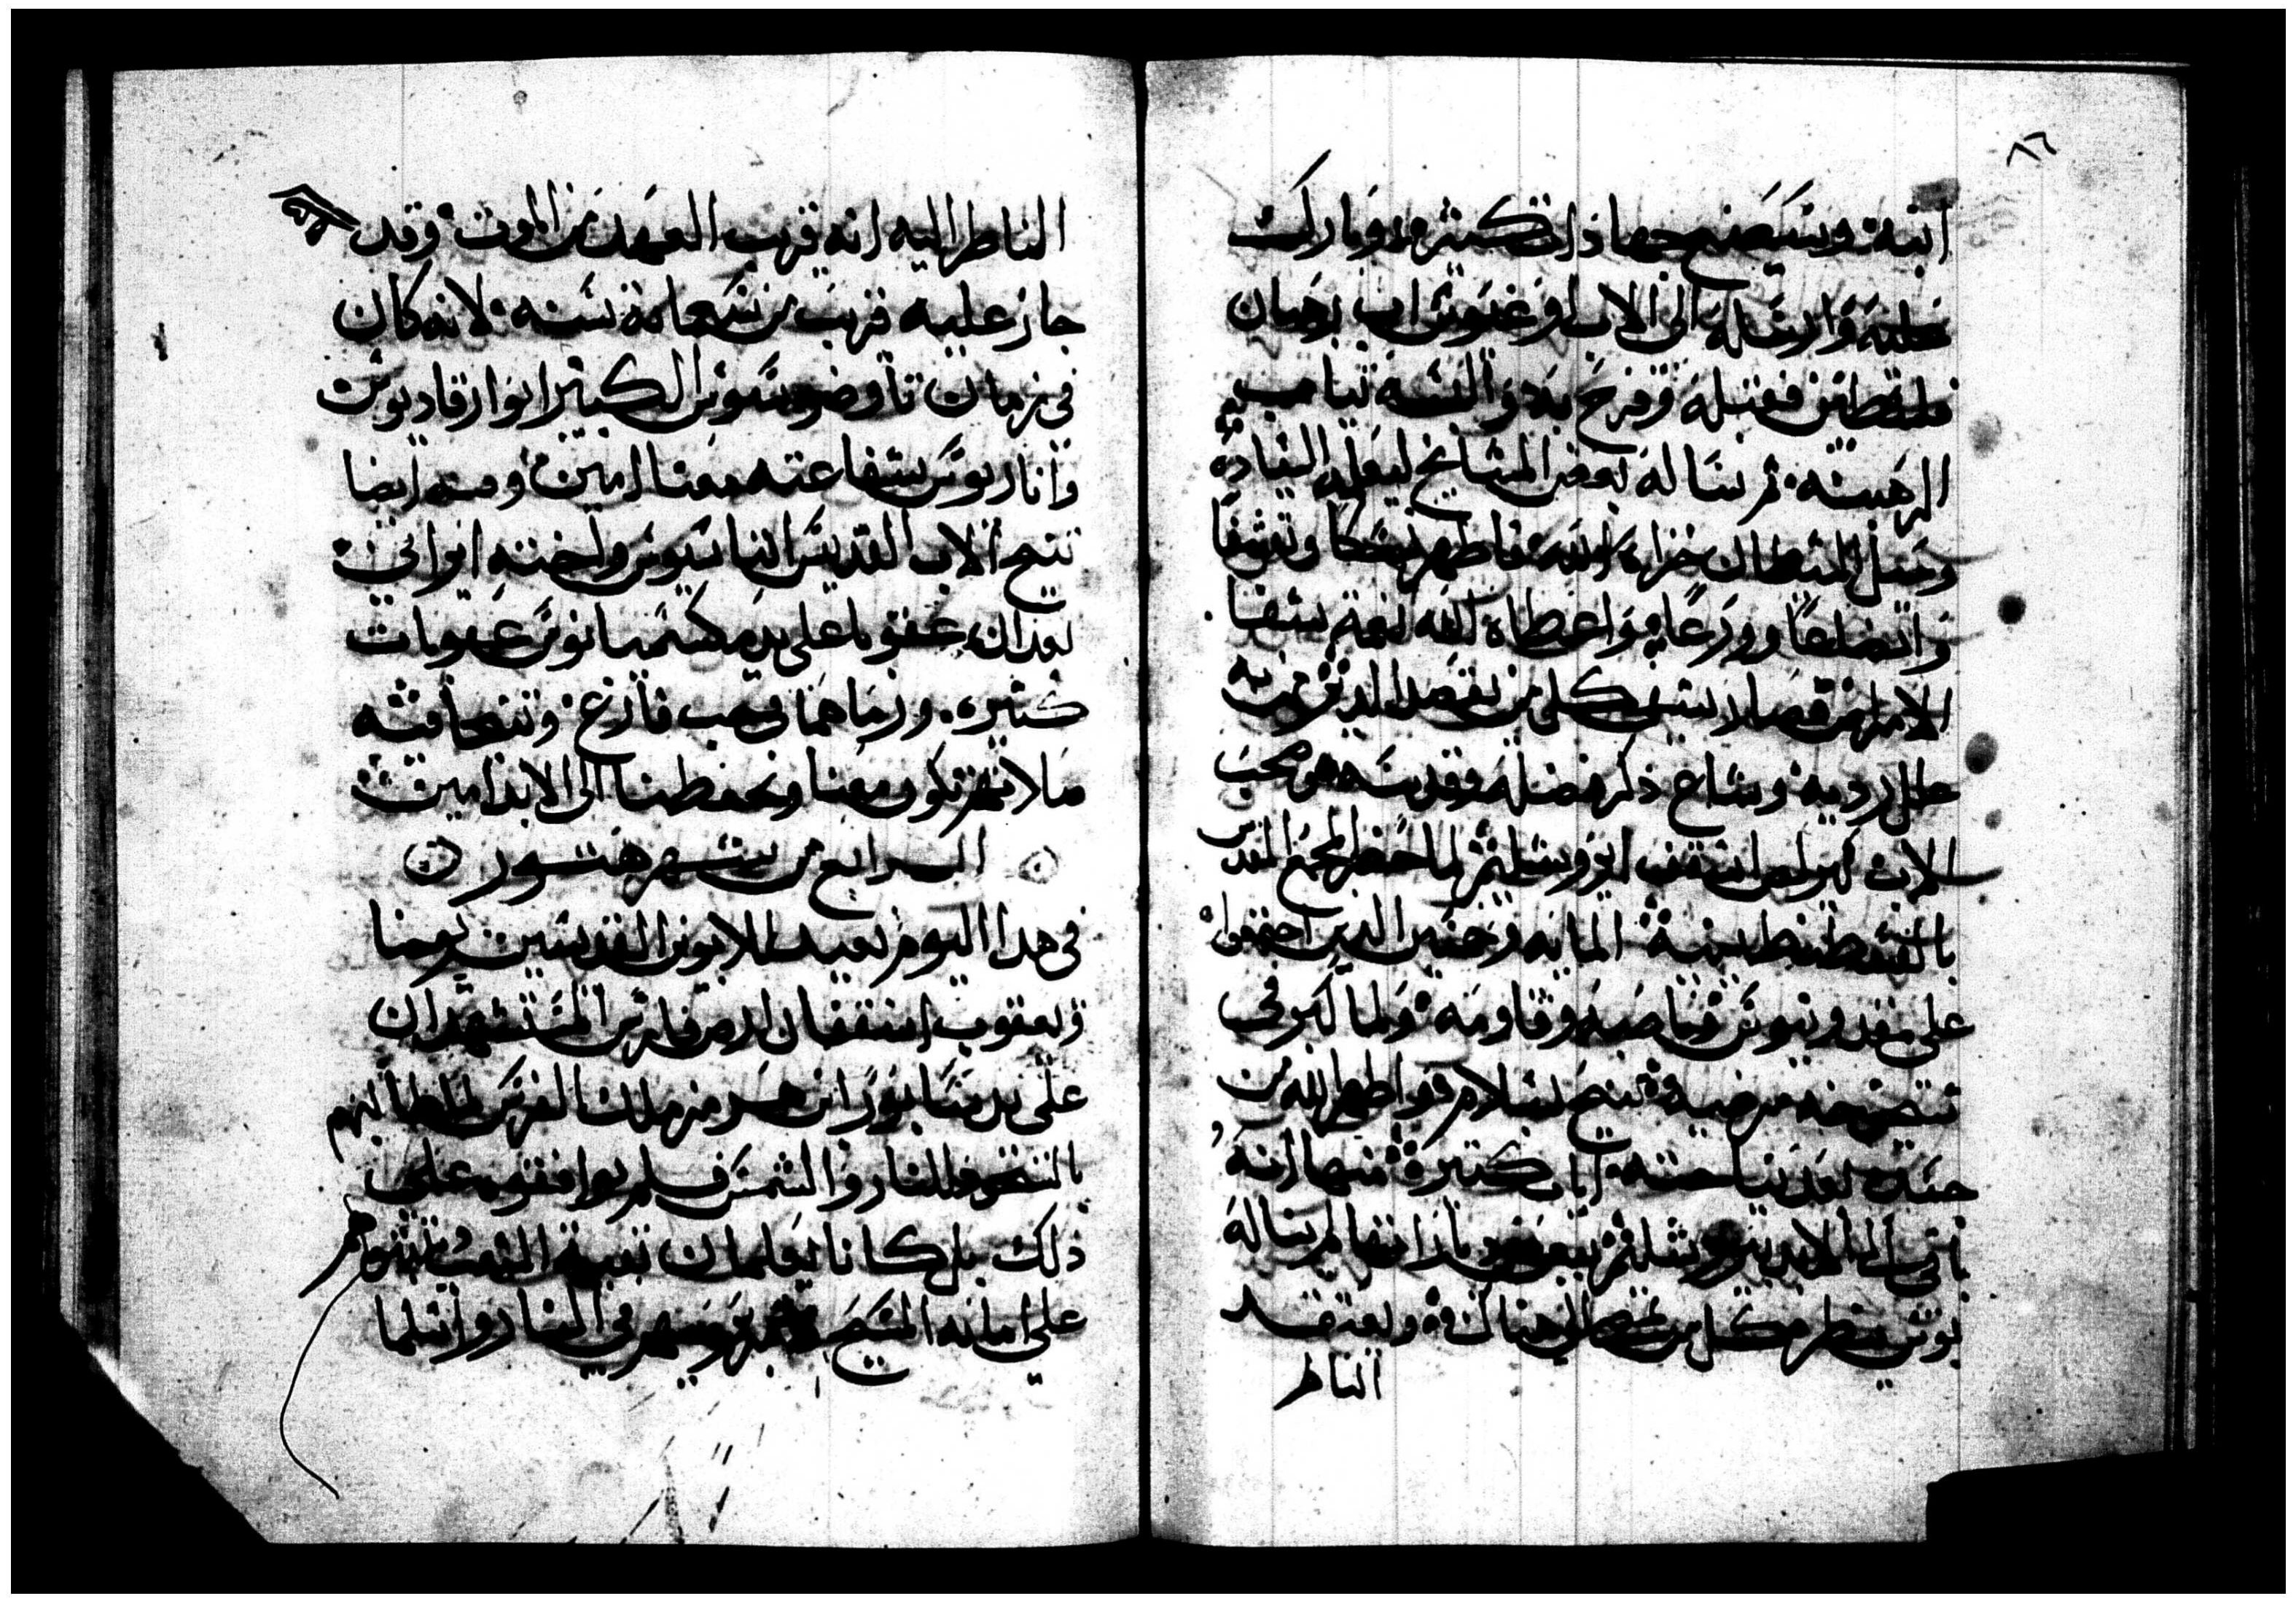 ٨٦
ابنه وسيصنع جهاذات كثيره وبارك
عليه وارسله الى الاب اوغيوس اب رهبان
فلسطين فقبله وفرح به والبسه ثياب
الرهبنه ثم سأله بعض المشايخ ليعلمه العباده
وحيل الشيطان خزاه الله فاظهر نسكا وتقشفا
واتضاعا وورعا واعطاه الله نعمة شفا
الامراض فصار يشفي كل من يقصد الدير من به
علل رديه وشاع ذكر فضله وقدسه وصحب
الاب كيرلص اسقف اورشليم لما حضر المجمع المقدس
بالقسطنطينية المايه وخمسين الذين اجتمعوا
على مقدونيوس وناصبه وقاومه ولما كبر في
شيخوخه مرضيه تنيح بسلام واظهر الله من
جسده بعد نياحته ايات كثيرة منها انه
باقي الى الان بغير
بوس ينظره كل من يصل الى هناك ويعتقد
الناظر
الناظر اليه انه قريب العهد من الموت وقد
جاز عليه قريب من تسعماية سنه لانه كان
في زمان تاوضوسيوس الكبير ابو ارقاديوس
وانوريوس شفاعته معنا امين وفيه ايضا
تنيح الاب القديس اثناسيوس واخته ايراني
بعد ان عوقبا على يد مكسيميانوس عقوبات
كثيره ورماهما في جب فارغ وتنيحا فيه
صلاتهم تكون معنا وتحفظنا الى الابد امين
الرابع من شهر هتور
في هذا اليوم نعيد للابوين القديسين يوحنا
ويعقوب اسقفان ارض فارس المستشهدان
على يد سابور ابن هرمز ملك الفرس لما طالبهم
بالسجود للنار والشمس فلم يوافقوه على
ذلك بل كانا يعلمان بقية الشعب ويثبتوهم
على امانه المسيح فرميهم في النار واسلما